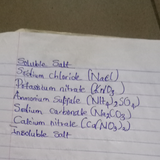 Soluble Salt
Sodium chloride (Nacl)
Potassium nitrate (KNO3)
Ammonium Sulfate (NH4)2SO4
Sodium carbonate (Na2CO3)
Calcium nitrate (Ca(NO3)2)
Insoluble Salt